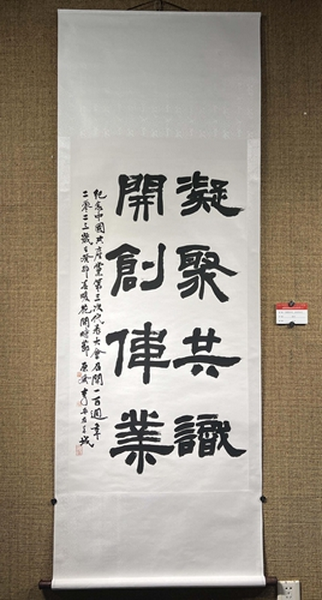 凝聚共識
開創偉業
紀念中國共產黨第三次代表大會召開一百週年
二零二三歲次癸卯春暖花開時節